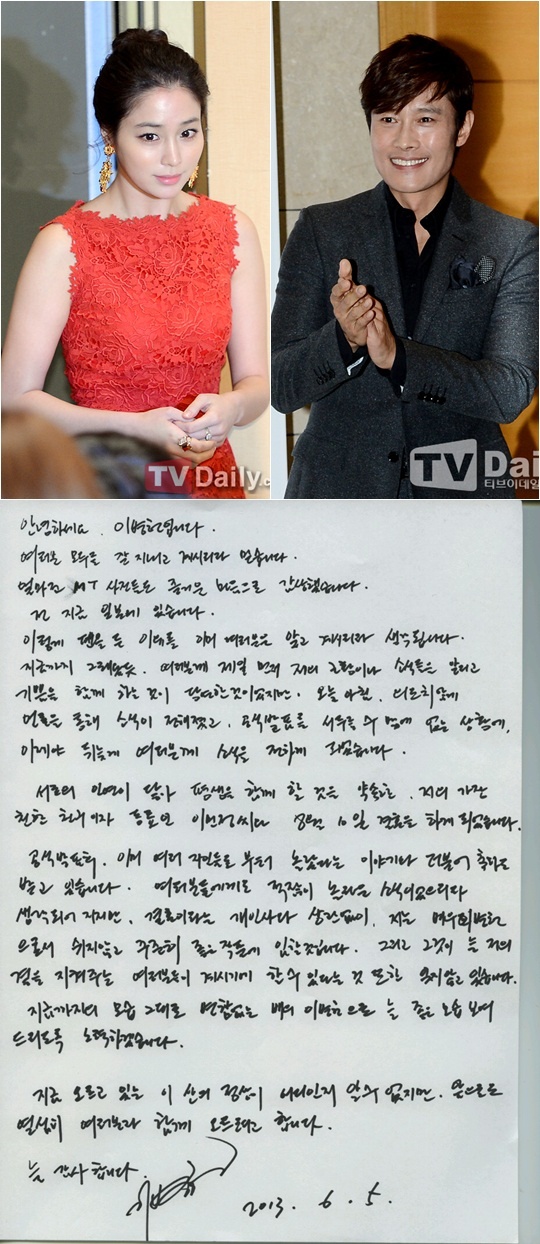 TV Daily.
TV Dai
티브이데일
안녕하세요. 이병헌입니다.
여러분 모두들 잘 지내고 계시리라 믿습니다.
얼마전 MT 사진들도 즐거운 마음으로 감상했습니다.
전 지금 일본에 있습니다.
이렇게 펜을 든 이유를 이미 여러분은 알고 계시리라 생각됩니다.
지금까지 그래왔듯, 여러분께 제일 먼저 저의 근황이나 소식들을 알리고
기쁨을 함께 하는 것이 당연한것이었지만, 오늘 아침, 의도치않게
언론을 통해 소식이 전해졌고, 공식발표를 서두를 수 밖에 없는 상황에,
이제야 뒤늦게 여러분께 소식을 전하게 되었습니다.
서로의 인연이 닿아 평생을 함께 할 것을 약속한, 저의 가장
친한 친구이자 동료인 이민정씨와 8월 10일 결혼을 하게 되었습니다.
공식발표후, 이미 여러 지인들로 부터 놀랐다는 이야기와 더불어 축하도
받고 있습니다. 여러분들에게도 적잖이 놀라운 소식이었으리라
생각되어 지지만, 결혼이라는 개인사와 상관없이, 저는 배우이병헌
으로서 쉬지않고 꾸준히 좋은 작품에 임할것입니다. 그리고 그것이 늘 저의
곁을 지켜주는 여러분들이 계시기에 할 수 있다는 것 또한 잊지않고 있습니다.
지금까지의 모습 그대로 변함없는 배우 이병헌으로 늘 좋은 모습 보여
드리도록 노력하겠습니다.
지금 오르고 있는 이 산의 정상이 어디인지 알 수 없지만, 앞으로도
열심히 여러분과 함께 오르려고 합니다.
늘 감사합니다.
2013. 6. 5.